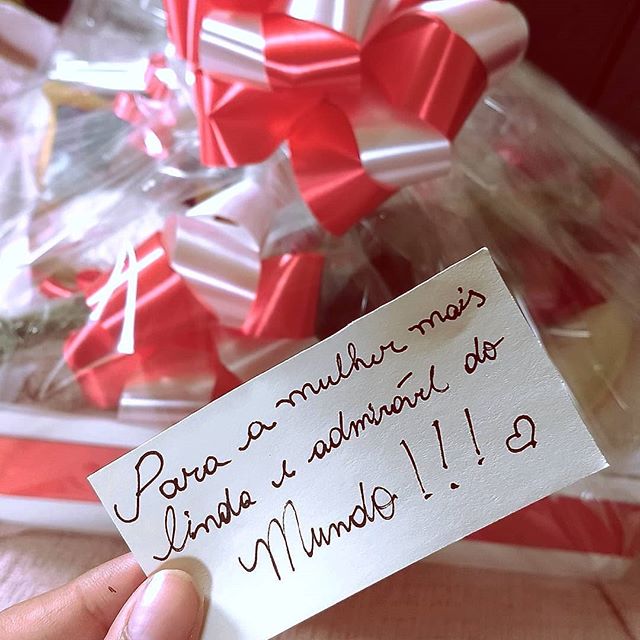 Para a mulher mais
linda e admirável do
Mundo!!! ♡